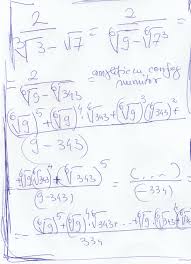 2/(∛3 − √7) = 2/(⁶√9 − ⁶√7³)
2/(⁶√9 − ⁶√343) = amplificu conjug
numitor
((⁶√9)⁵ + (⁶√9)⁴ ⁶√343 + (⁶√9)³(⁶√343)² +
/(9 − 343)
+ ⁶√9(⁶√343)⁴ + (⁶√343)⁵)/(9−343) = (...)/(−334)
= ((⁶√9)⁵ + (⁶√9)⁴ ⁶√343 + ... + ⁶√9(⁶√343)⁴ + (⁶√343
/334